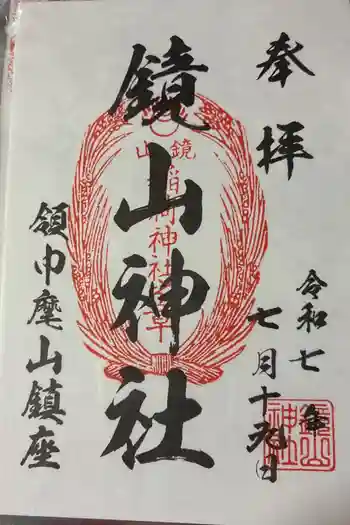 奉拝
令和七年
七月十九日
鏡山神社
鏡山
稲荷神社
領巾麾山鎮座
鏡山神社